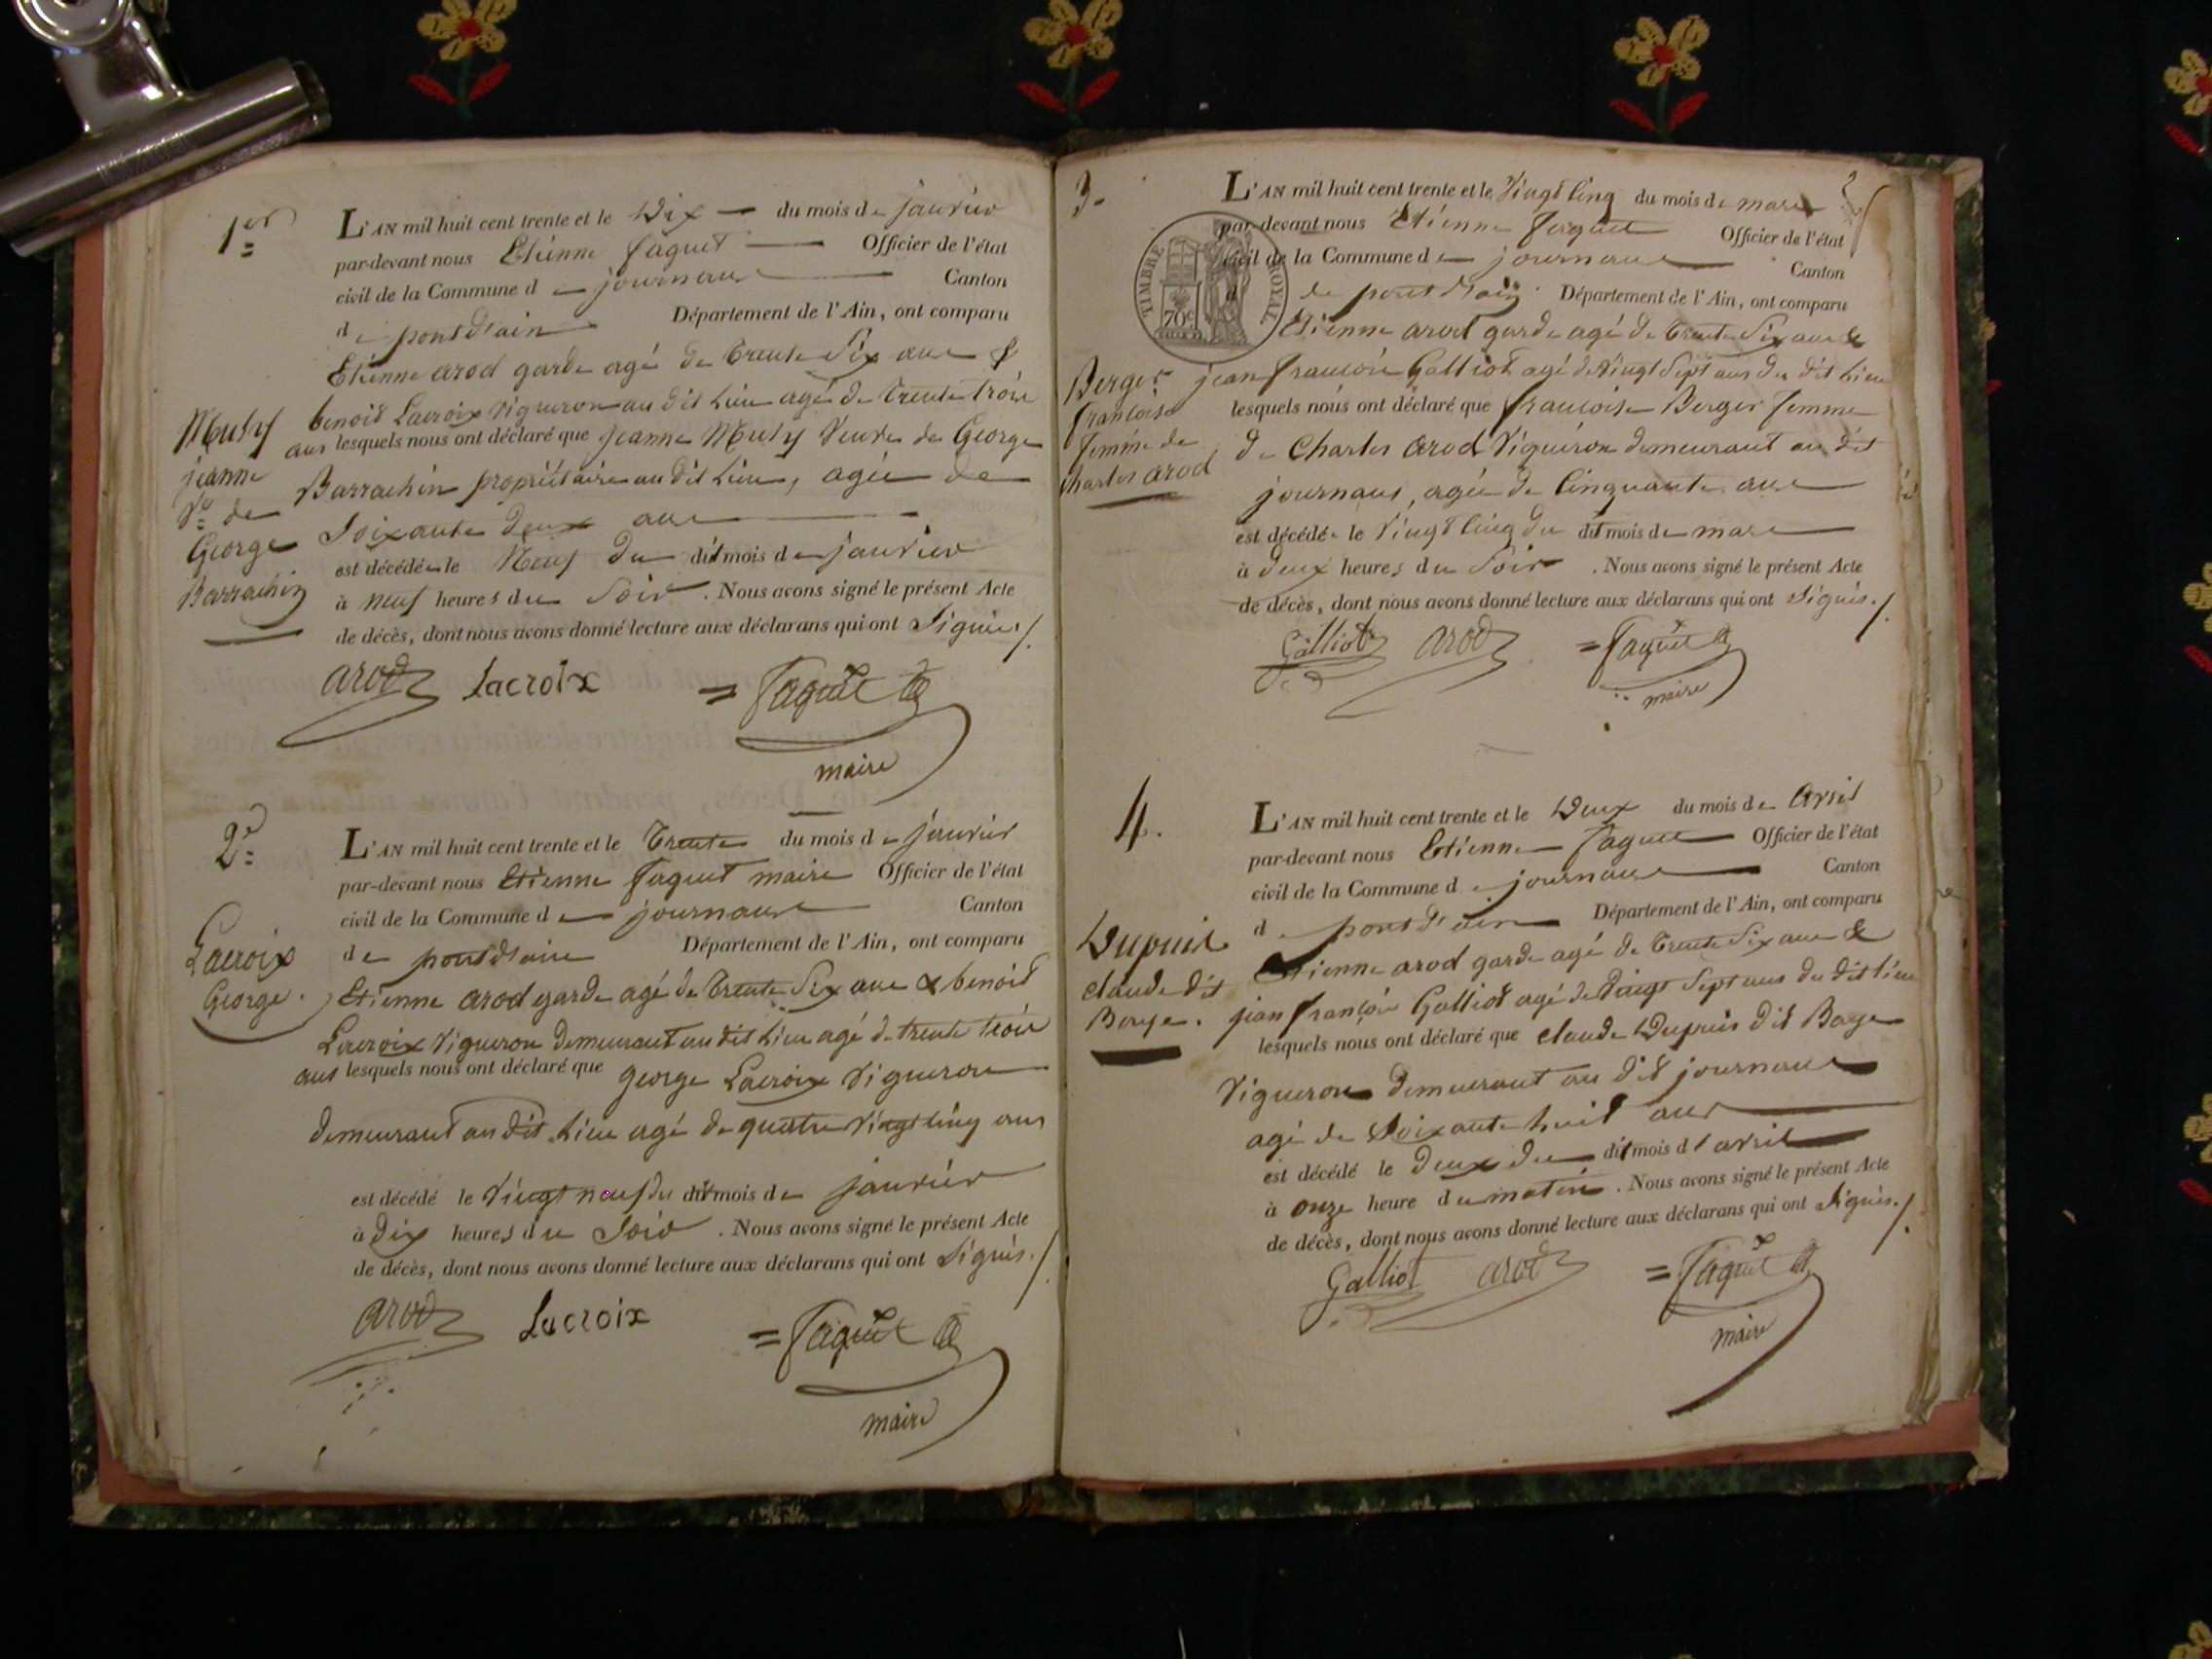 1er
L'AN mil huit cent trente et le Dix du mois de janvier
par-devant nous Etienne faguet Officier de l'état
civil de la Commune de journans Canton
de pontd'ain Département de l'Ain, ont comparu
Etienne arod garde agé de trente Six ans &
benoit Lacroix Vigneron au dit Lieu agé de trente trois
ans lesquels nous ont déclaré que jeanne Muty Veuve de George
Barrachin propriétaire au dit Lieu, agée de
Soixante deux ans
est décédée le Neuf du dit mois de janvier
à neuf heures du Soir. Nous avons signé le présent Acte
de décès, dont nous avons donné lecture aux déclarans qui ont Signés./.
Muty
jeanne
Ve de
George
Barrachin
arod Lacroix = faguet
maire
2e
L'AN mil huit cent trente et le trente du mois de janvier
par-devant nous Etienne faguet maire Officier de l'état
civil de la Commune de journans Canton
de pontd'ain Département de l'Ain, ont comparu
Etienne arod garde agé de trente Six ans & benoit
Lacroix Vigneron demeurant au dit Lieu agé de trente trois
ans lesquels nous ont déclaré que george Lacroix Vigneron
demeurant au dit Lieu agé de quatre Vingt cinq ans
est décédé le Vingt neuf du dit mois de janvier
à dix heures du Soir. Nous avons signé le présent Acte
de décès, dont nous avons donné lecture aux déclarans qui ont Signés./.
Lacroix
George.
arod Lacroix = faguet
maire
3.
L'AN mil huit cent trente et le Vingt Cinq du mois de mars
par-devant nous Etienne faguet Officier de l'état
civil de la Commune de journans Canton
de pont d'ain Département de l'Ain, ont comparu
TIMBRE ROYAL
70c
Etienne arod garde agé de trente Six ans &
jean françois Galliot agé de Vingt Sept ans du dit Lieu
lesquels nous ont déclaré que françoise Berger femme
de Charles arod Vigneron demeurant au dit
journans, agée de Cinquante ans
est décédée le Vingt Cinq du dit mois de mars
à deux heures du Soir. Nous avons signé le présent Acte
de décès, dont nous avons donné lecture aux déclarans qui ont Signés./.
Berger
francoise
femme de
charles arod
Galliot arod = faguet
maire
4.
L'AN mil huit cent trente et le Deux du mois de Avril
par-devant nous Etienne faguet Officier de l'état
civil de la Commune de journans Canton
de pont d'ain Département de l'Ain, ont comparu
Etienne arod garde agé de trente Six ans &
jean françois Galliot agé de Vingt Sept ans du dit lieu
lesquels nous ont déclaré que claude Dupuis dit Boyе
Vigneron demeurant au dit journans
agé de Soixante huit ans
est décédé le Deux du dit mois d'avril
à onze heure du matin. Nous avons signé le présent Acte
de décès, dont nous avons donné lecture aux déclarans qui ont Signés./.
Dupuis
claude dit
Galliot arod = faguet
maire